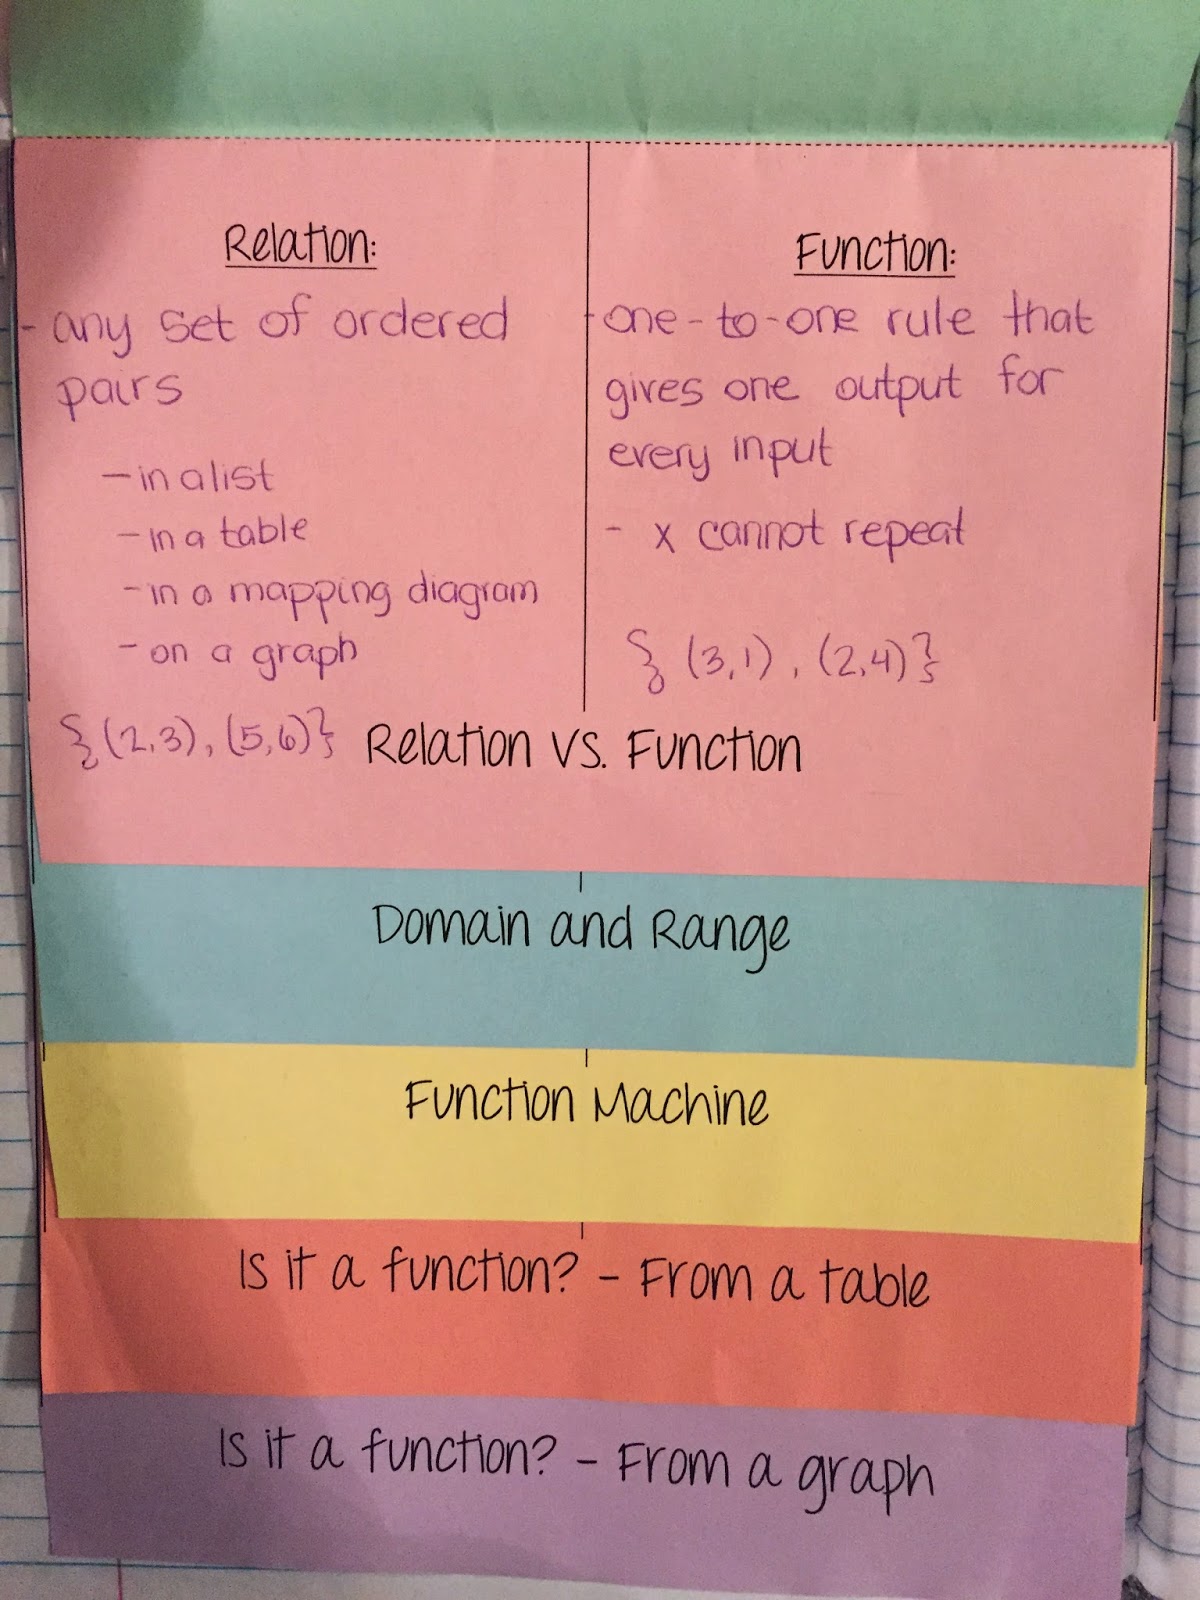 Relation:
- any set of ordered
pairs
- in a list
- in a table
- in a mapping diagram
- on a graph
{(2,3), (5,6)}
Function:
- one-to-one rule that
gives one output for
every input
- x cannot repeat
{(3,1), (2,4)}
Relation vs. Function
Domain and Range
Function Machine
Is it a function? - From a table
Is it a function? - From a graph